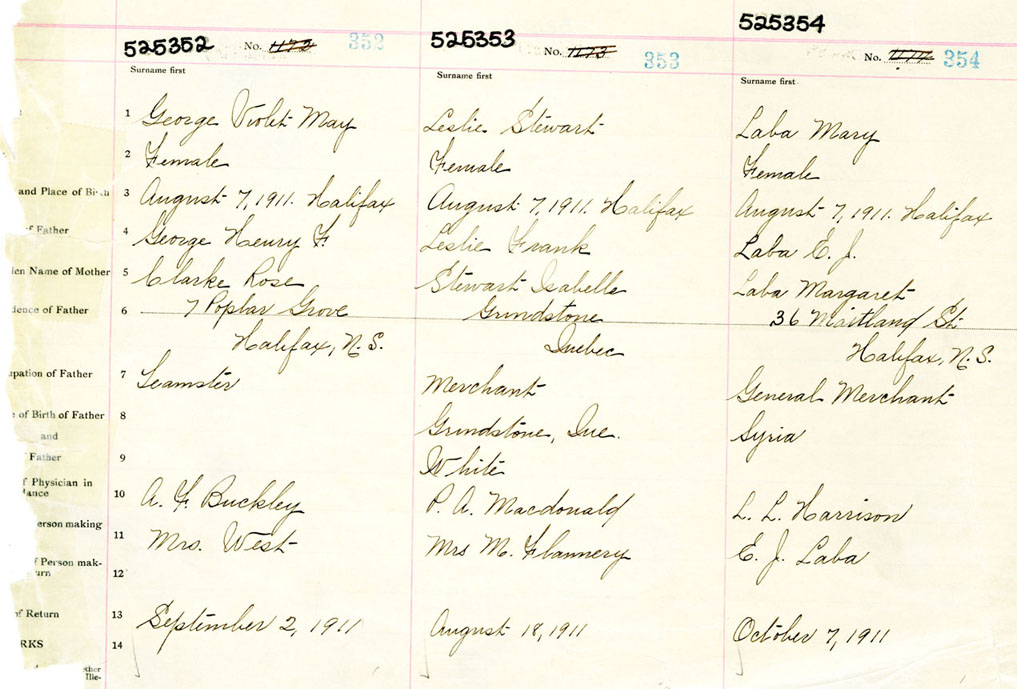 525352 No. 1172 352
Surname first
525353 No. 1173 353
Surname first
525354
No. 354
Surname first
1 George Violet May
Leslie Stewart
Laba Mary
2 Female
Female
Female
and Place of Birth 3 August 7, 1911. Halifax
August 7, 1911. Halifax
August 7, 1911. Halifax
of Father 4 George Henry F
Leslie Frank
Laba E. J.
den Name of Mother 5 Clarke Rose
Stewart Isabelle
Laba Margaret
dence of Father 6 7 Poplar Grove
Grindstone
36 Maitland St.
Halifax, N.S.
Quebec
Halifax, N.S.
upation of Father 7 Teamster
Merchant
General Merchant
of Birth of Father 8
Grindstone, Que.
Syria
and
Father 9
White
f Physician in
dance 10 A. F. Buckley
P. A. Macdonald
L. L. Harrison
erson making
11 Mrs. West
Mrs M. Flannery
E. J. Laba
f Person mak-
urn 12
of Return 13 September 2, 1911
August 18, 1911
October 7, 1911
RKS 14
ther
Ille-